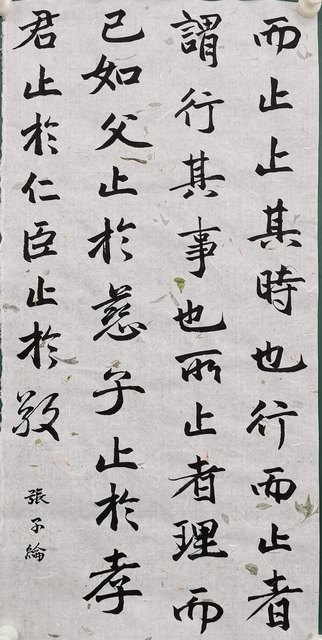 而止止其時也行而止者
謂行其事也所止者理而
已如父止於慈子止於孝
君止於仁臣止於敬
張子綸